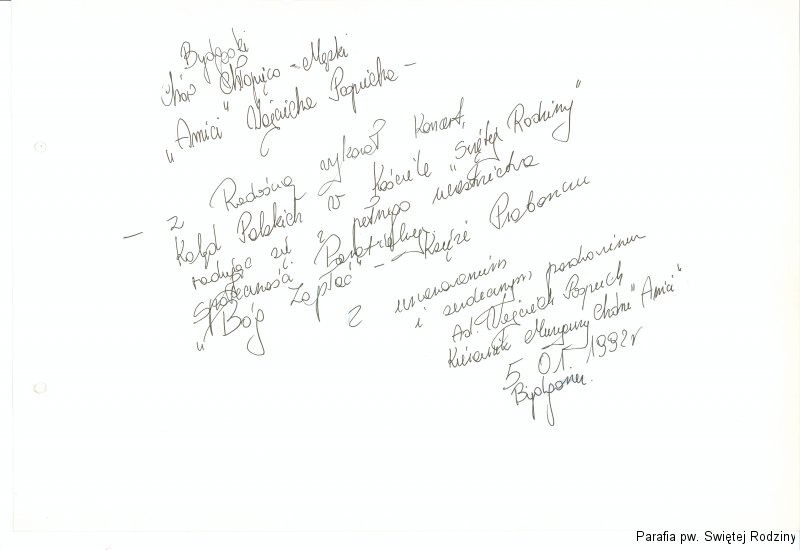 Bydgoski
Chór Chłopięco-Męski
"Amici" Wojciecha Pospiecha -
- z Radością wykonał Koncert
Kolęd Polskich w Kościele "Świętej Rodziny"
radując się z pełnego uczestnictwa
społeczność Parafialnej
"Bóg zapłać" - Księże Proboszczu
Z uszanowaniem
i serdecznym pozdrowieniem
Ad. Wojciech Pospiech
Kierownik Muzyczny Chóru "Amici"
5 01. 1992r
Bydgoszcz.
Parafia pw. Swiętej Rodziny